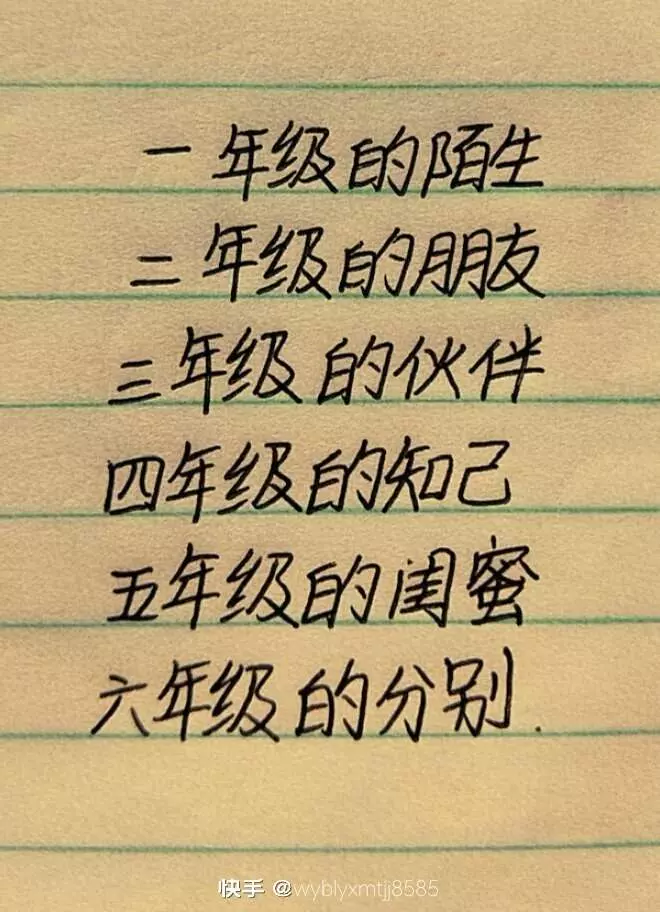 一年级的陌生
二年级的朋友
三年级的伙伴
四年级的知己
五年级的闺蜜
六年级的分别.
快手 @wyblyxmtjj8585